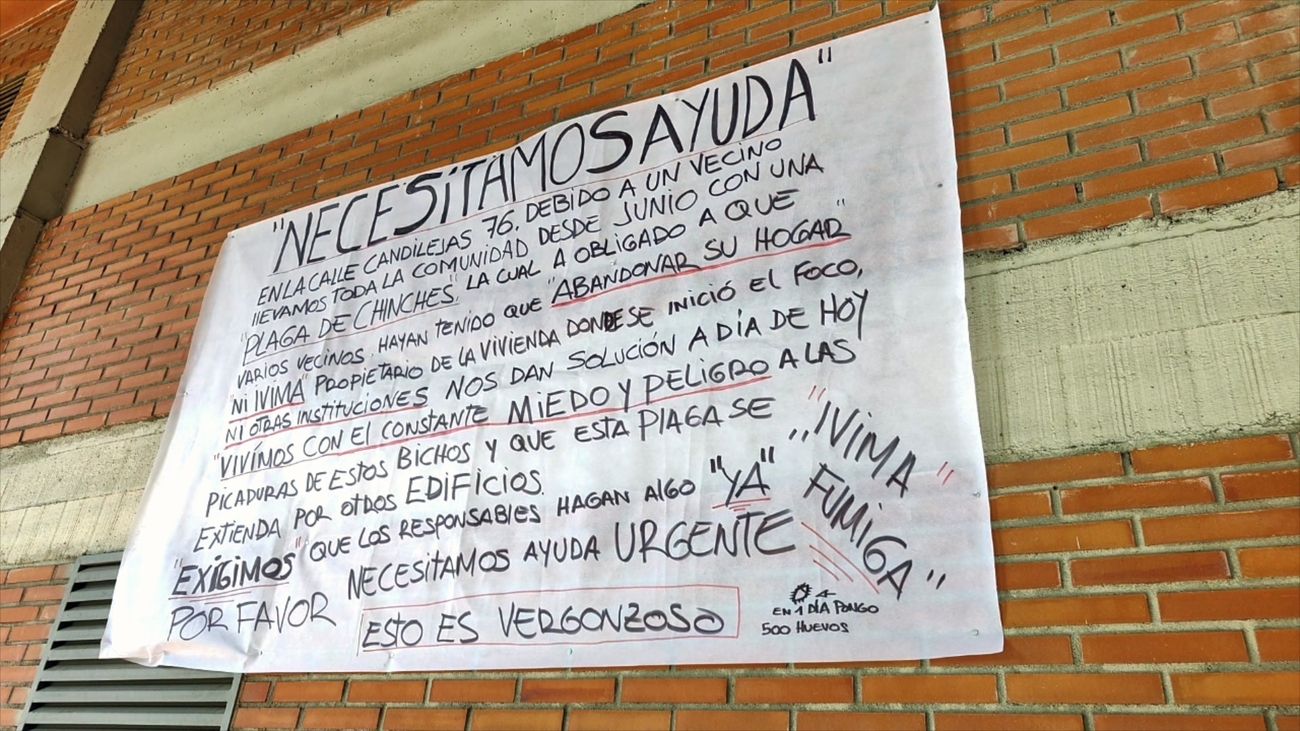 "NECESiTAMOS AYUDA"
EN LA CALLE CANDILEJAS 76. DEBIDO A UN VECINO
llEVAMOS TODA LA COMUNIDAD DESDE JUNIO CON UNA
"PLAGA DE CHINCHES", LA CUAL A OBLIGADO A QUE
VARIOS VECINOS HAYAN TENIDO QUE "ABANDONAR SU HOGAR"
"Ni IVIMA" PROPIETARIO DE LA VIVIENDA DONDE SE INICIÓ EL FOCO,
Ni OTRAS INSTITUCIONES NOS DAN SOLUCIÓN A DÍA DE HOY
"VIVÍMOS CON El CONSTANTE MIEDO Y PELIGRO A LAS
PICADURAS DE ESTOS BICHOS Y QUE ESTA PLAGA SE
EXTIENDA POR OTROS EDIFICIOS.
"EXIGIMOS" QUE LOS RESPONSABLES HAGAN ALGO "YA"
POR FAVOR NECESITAMOS AYUDA URGENTE
ESTO ES VERGONZOSO
"IVIMA"
"FUMIGA"
EN 1 DÍA PONGO
500 HUEVOS